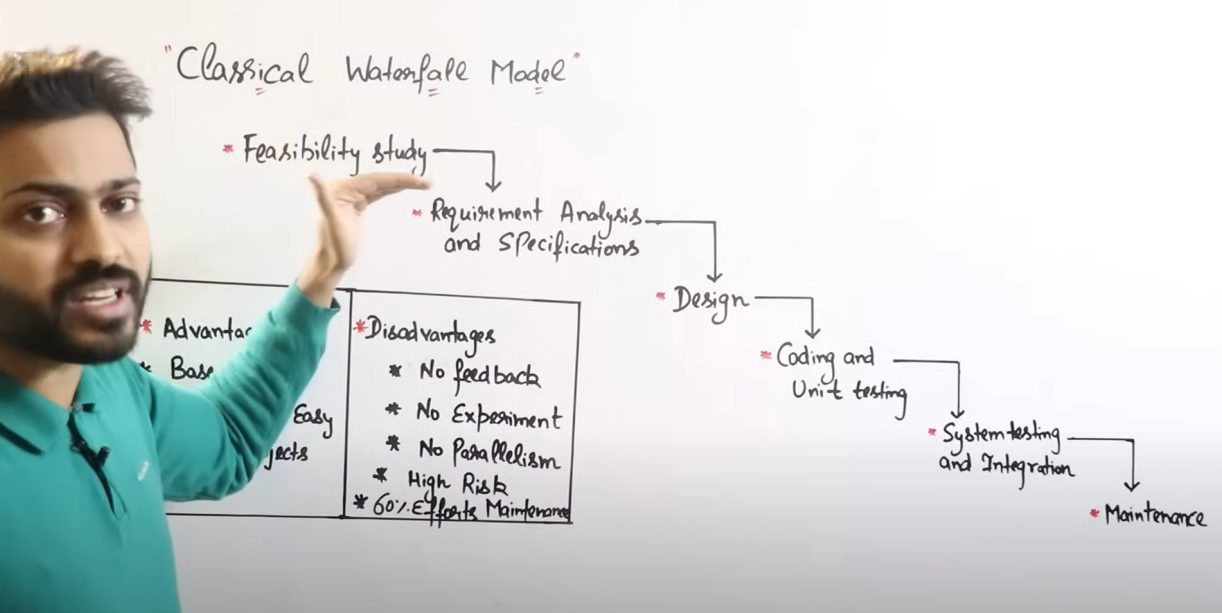 "Classical Waterfall Model"
* Feasibility study
* Requirement Analysis
and Specifications
* Design
* Coding and
Unit testing
* System testing
and Integration
* Maintenance
*
* Base
Easy
* Disadvantages
* No feedback
* No Experiment
* No Parallelism
* High Risk
* 60% Efforts Maintenance